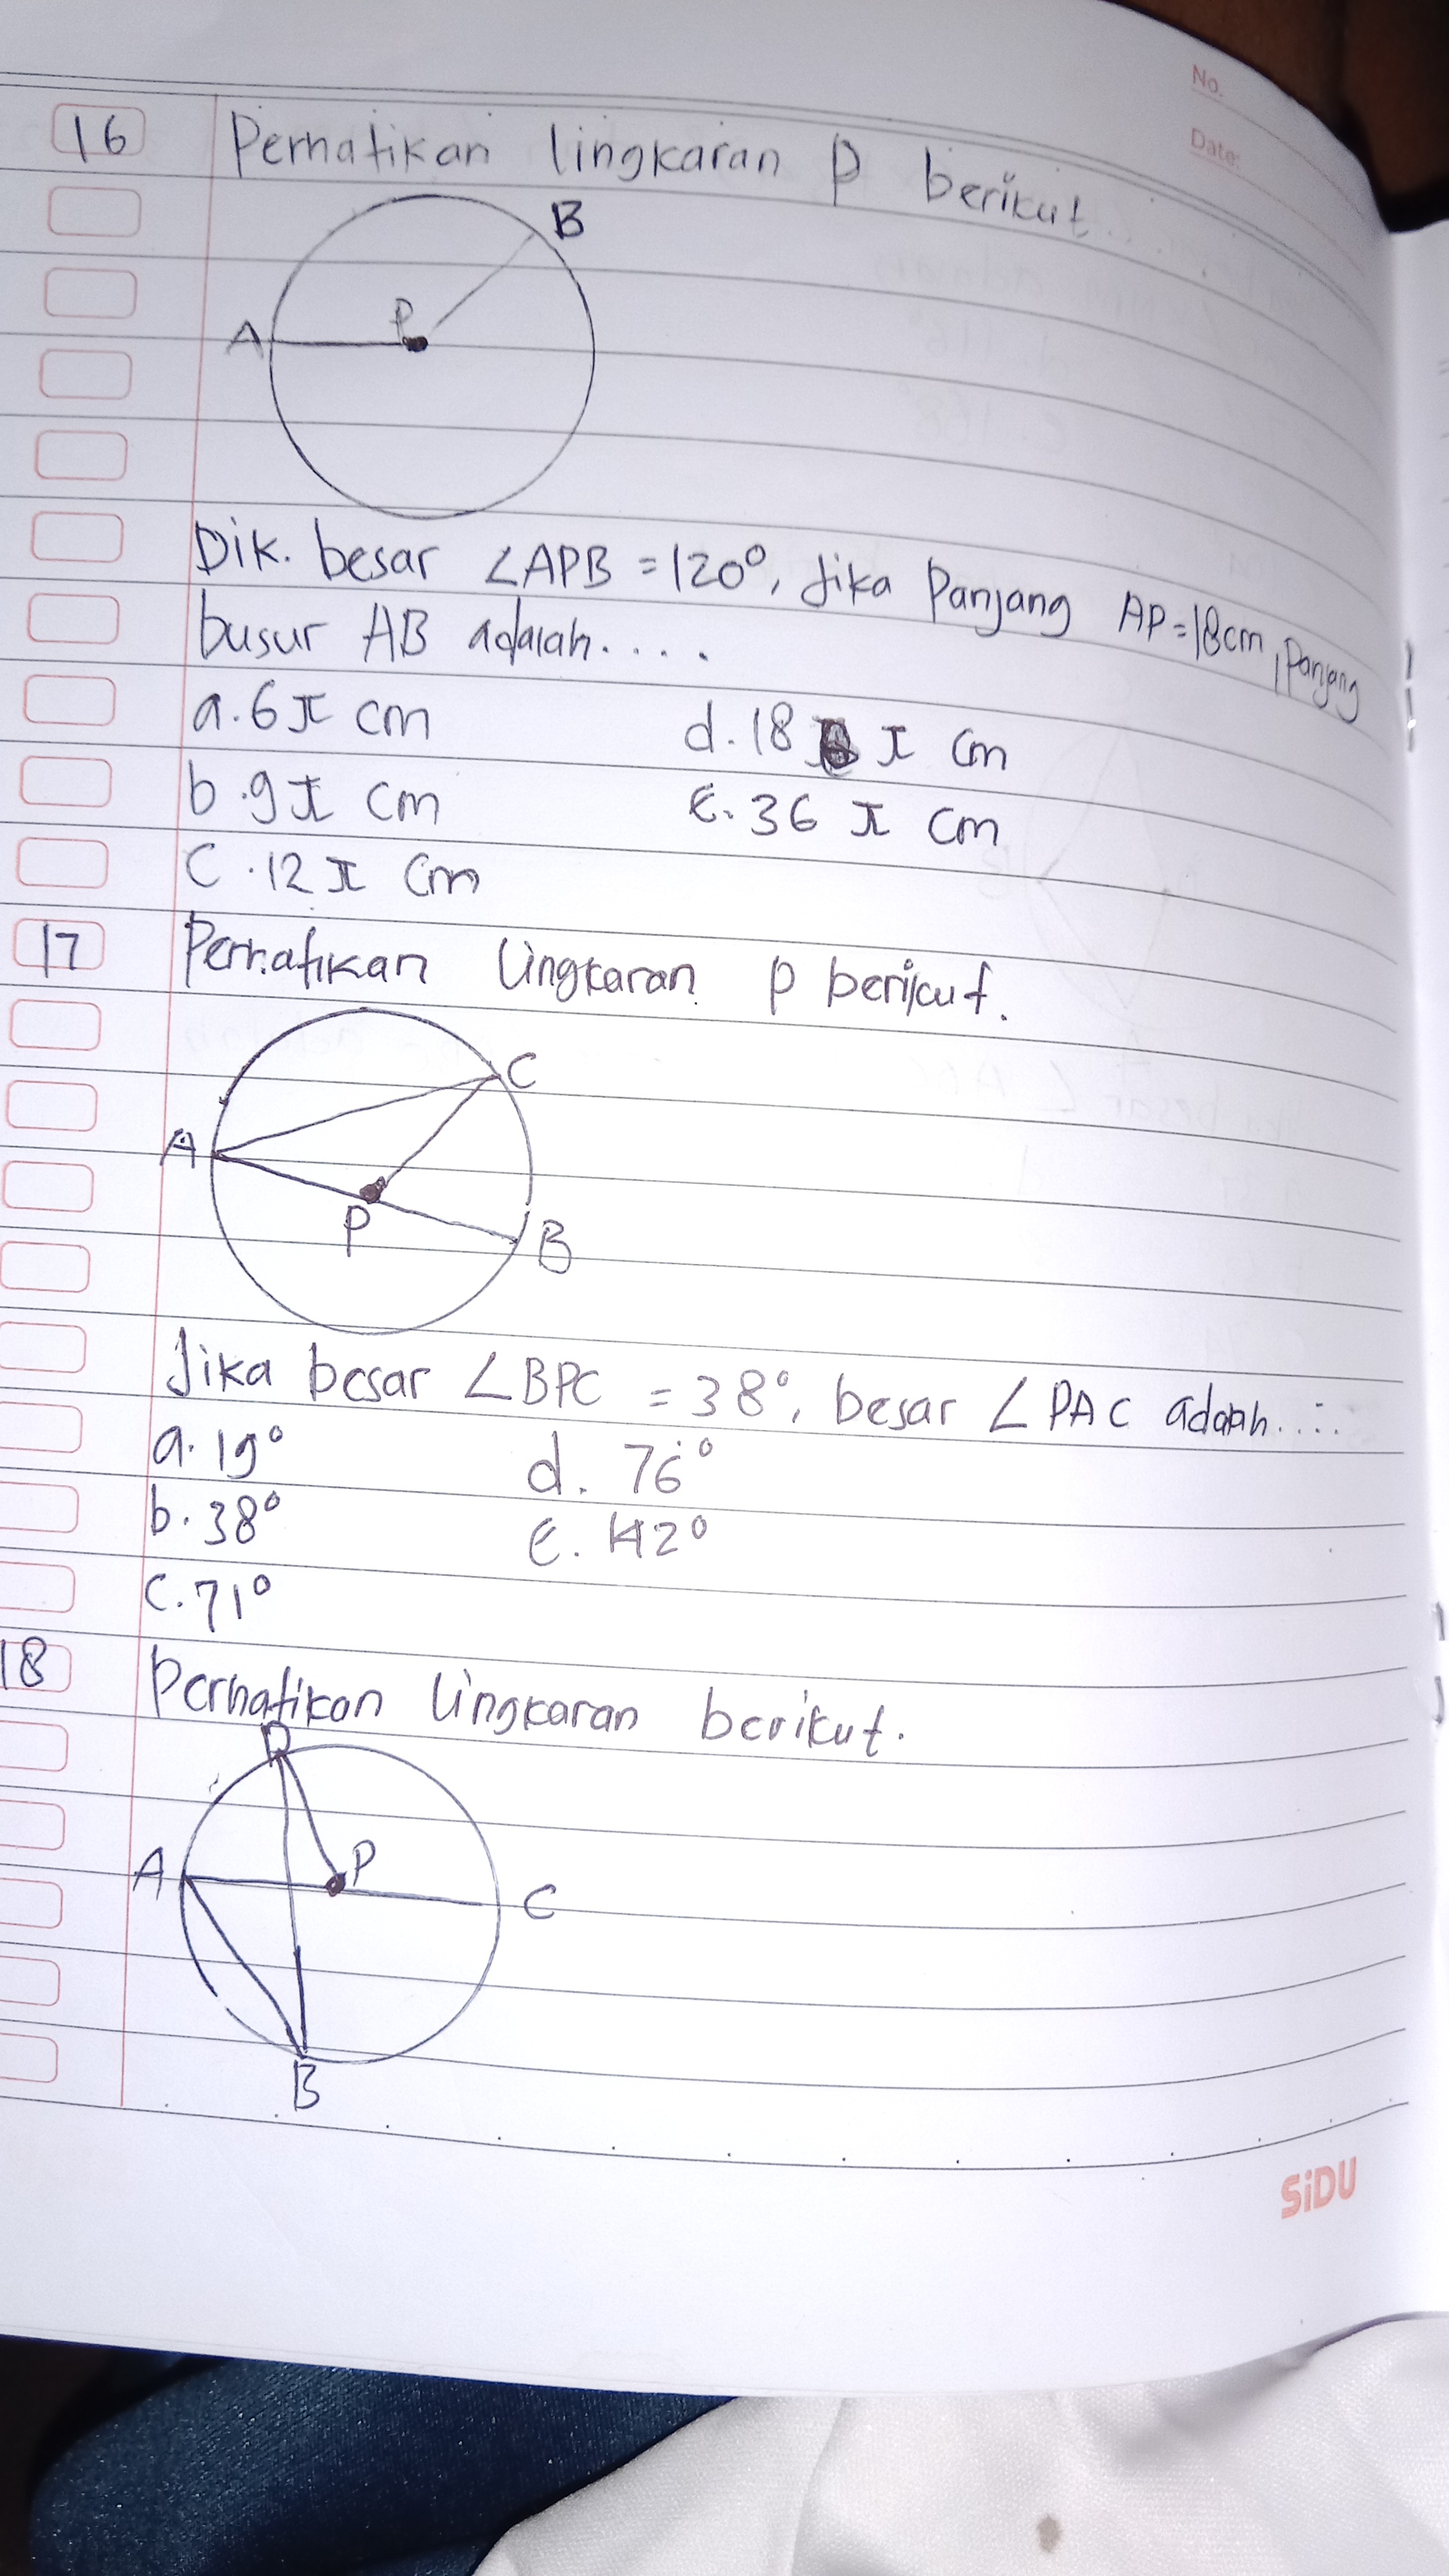 No.
Date:
16 Perhatikan lingkaran P berikut.
B
A P
Dik. besar ∠APB = 120°, Jika Panjang AP = 18 cm, Panjang
busur AB adalah....
a. 6π cm d. 18 π cm
b. 9π cm e. 36 π cm
c. 12π cm
17 Perhatikan lingkaran P berikut.
C
A
P B
Jika besar ∠BPC = 38°, besar ∠PAC adalah....
a. 19° d. 76°
b. 38° e. 142°
c. 71°
18 Perhatikan lingkaran berikut.
D
A P C
B
SiDU